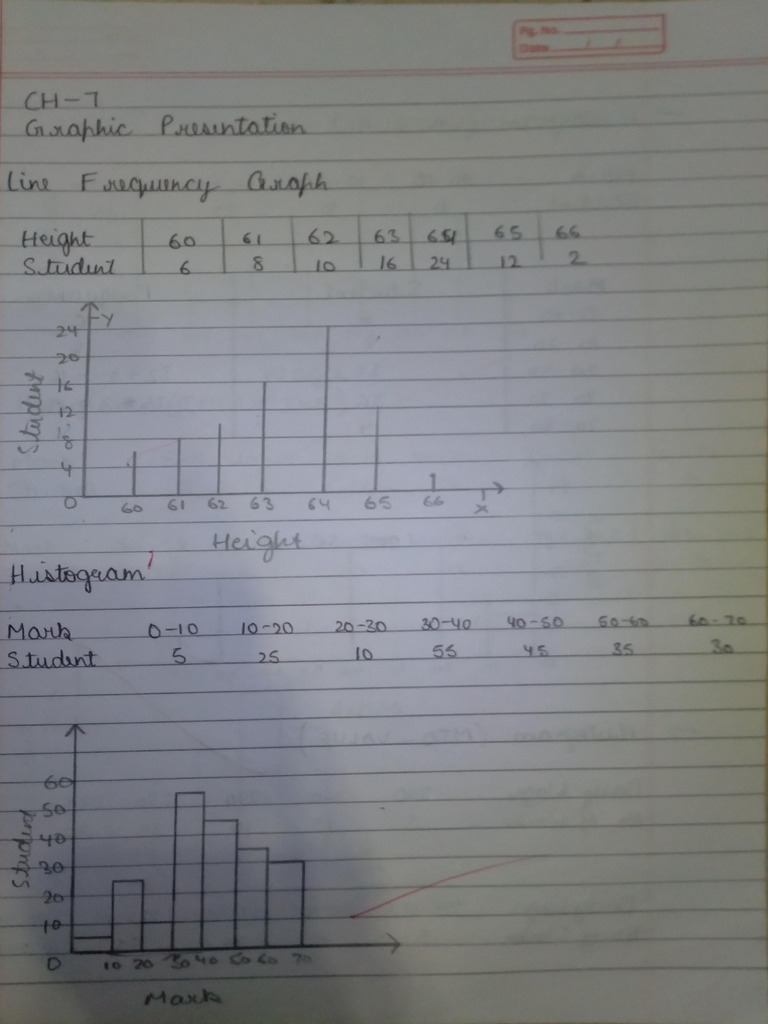 Pg. No.
Date / /
CH-7
Graphic Presentation
Line Frequency Graph
Height 60 61 62 63 64 65 66
Student 6 8 10 16 24 12 2
Y
24
20
16
12
8
4
0
Student
60 61 62 63 64 65 66 X
Height
Histogram
Mark 0-10 10-20 20-30 30-40 40-50 50-60 60-70
Student 5 25 10 55 45 35 30
60
50
40
30
20
10
0
Student
10 20 30 40 50 60 70
Mark